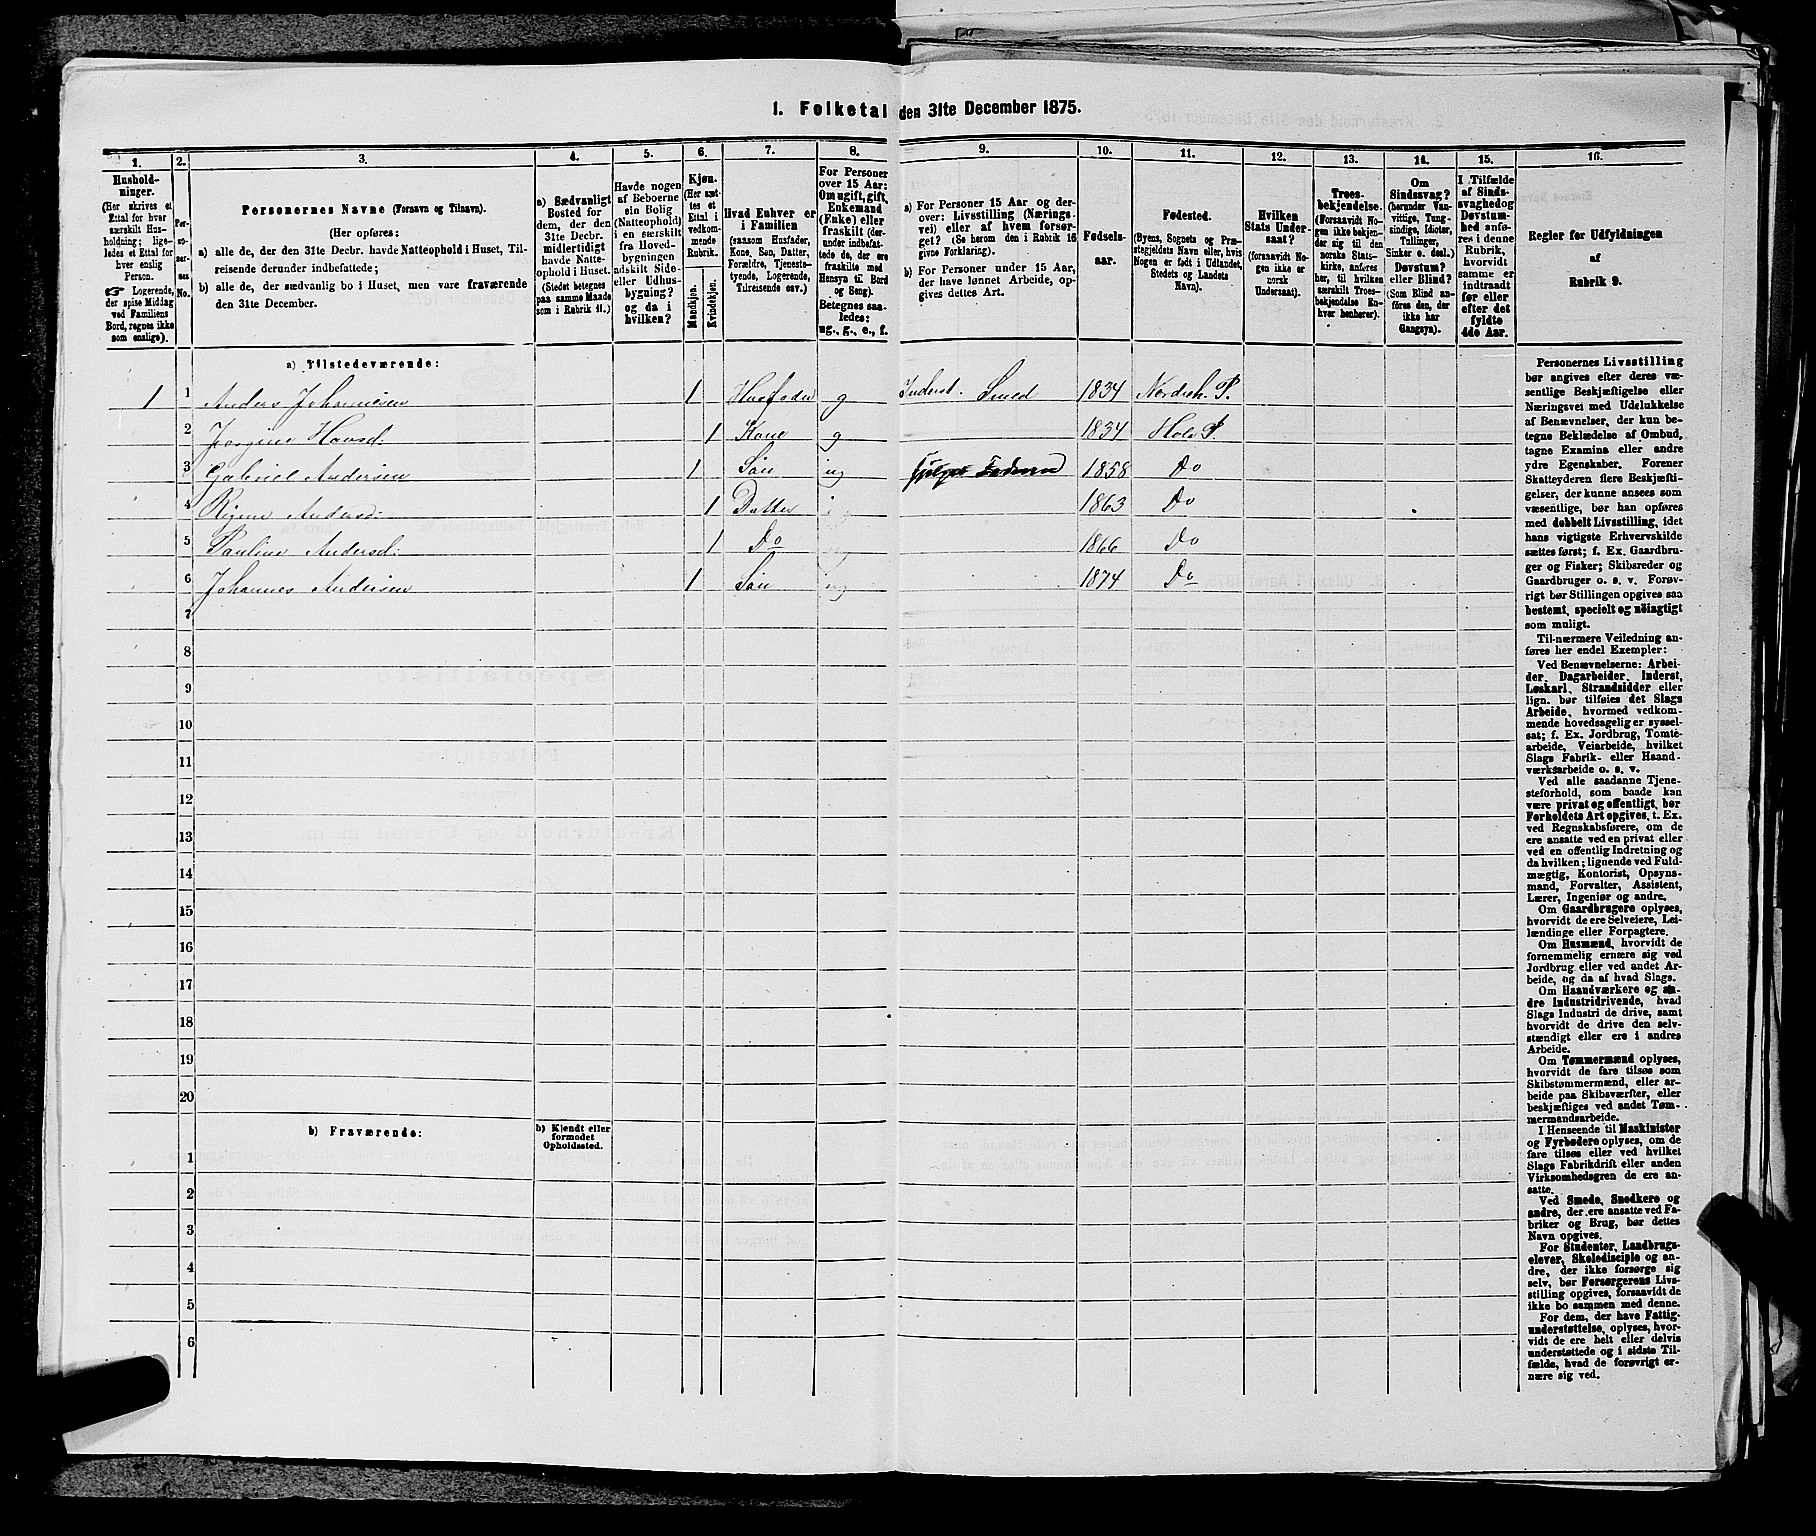 1. Folketal den 31te December 1875.
1. 2. 3. 4. 5. 6. 7. 8. 9. 10. 11. 12. 13. 14. 15. 16.
Hushold-
ninger.
(Her skrives et
Ettal for hver
særskilt Hus-
holdning; lige-
ledes et Ettal for
hver enslig
Person.
☞ Logerende,
der spise Middag
ved Familiens
Bord, regnes ikke
som enslige).
Per-
so-
ner-
nes
No.
Personernes Navne (Fornavn og Tilnavn).
(Her opføres:
a) alle de, der den 31te Decbr. havde Natteophold i Huset, Til-
reisende derunder indbefattede;
b) alle de, der sædvanlig bo i Huset, men vare fraværende
den 31te December.
a) Sædvanligt
Bosted for
dem, der den
31te Decbr.
midlertidigt
havde Natte-
ophold i Huset.
(Stedet betegnes
paa samme Maade
som i Rubrik 11.)
Havde nogen
af Beboerne
sin Bolig
(Natteophold)
i en særskilt
fra Hoved-
bygningen
adskilt Side-
eller Udhus-
bygning?
og da i
hvilken?
Kjøn.
(Her sæt-
tes et
Ettal i
vedkom-
mende
Rubrik.
Mandkjøn.
Kvindekjøn.
Hvad Enhver er
i Familien
(saasom Husfader,
Kone, Søn, Datter,
Forældre, Tjeneste-
tyende, Logerende,
Tilreisende osv.)
For Personer
over 15 Aar:
Om ugift, gift,
Enkemand
(Enke) eller
fraskilt (der-
under indbefat-
tede de, der ere
fraskilte med
Hensyn til Bord
og Seng).
Betegnes saa-
ledes:
ug., g., e., f.
a) For Personer 15 Aar og der-
over: Livsstilling (Nærings-
vei) eller af hvem forsør-
get? (Se herom den i Rubrik 16
givne Forklaring).
b) For Personer under 15 Aar,
der have lønnet Arbeide, op-
gives dettes Art.
Fødsels-
aar.
Fødested.
(Byens, Sognets og Præ-
stegjeldets Navn eller, hvis
Nogen er født i Udlandet,
Stedets og Landets
Navn).
Hvilken
Stats Under-
saat?
(forsaavidt No-
gen ikke er
norsk
Undersaat).
Troes-
bekjendelse.
(Forsaavidt No-
gen ikke bekjen-
der sig til den
norske Stats-
kirke, anføres
her, til hvilken
særskilt Troes-
bekjendelse En-
hver henhører).
Om
Sindssvag?
(herunder Van-
vittige, Tung-
sindige, Idioter,
Tullinger,
Sinker o. desl.)
Døvstum?
eller Blind?
(Som Blind an-
føres den, der
ikke har
Gangsyn).
I Tilfælde
af Sinds-
svaghed og
Døvstum-
hed anfø-
res i denne
Rubrik,
hvorvidt
samme er
indtraadt
før eller
efter det
fyldte
4de Aar.
Regler for Udfyldningen
af
Rubrik 9.
a) Tilstedeværende:
1 1 Anders Johannesen 1 Husfader g Inderst. Smed 1834 Nordreh. P.
2 Jørgine Hansd: 1 Kone g 1834 Hole P.
3 Gabriel Andersen 1 Søn ug 1858 Do
4 Andersd: 1 Datter 1863 Do
5 Pauline Andersd: 1 Do 1866 Do
6 Johannes Andersen 1 Søn ug 1874 Do
7
8
9
10
11
12
13
14
15
16
17
18
19
20
b) Fraværende:
b) Kjendt eller
formodet
Opholdssted.
1
2
3
4
5
6
Personernes Livsstilling
bør angives efter deres væ-
sentlige Beskjæftigelse eller
Næringsvei med Udelukkelse
af Benævnelser, der kun be-
tegne Beklædelse af Ombud,
tagne Examina eller andre
ydre Egenskaber. Forener
Skatteyderen flere Beskjæfti-
gelser, der kunne ansees som
væsentlige, bør han opføres
med dobbelt Livsstilling, idet
hans vigtigste Erhvervskilde
sættes først; f. Ex. Gaardbru-
ger og Fisker; Skibsreder og
Gaardbruger o. s. v. Forøv-
rigt bør Stillingen opgives saa
bestemt, specielt og nøiagtigt
som muligt.
Til nærmere Veiledning an-
føres her endel Exempler:
Ved Benævnelserne: Arbei-
der, Dagarbeider, Inderst,
Løskarl, Strandsidder eller
lign. bør tilføies det Slags
Arbeide, hvormed vedkom-
mende hovedsagelig er syssel-
sat; f. Ex. Jordbrug, Tomte-
arbeide, Veiarbeide, hvilket
Slags Fabrik- eller Haand-
værksarbeide o. s. v.
Ved alle saadanne Tjene-
steforhold, som baade kan
være privat og offentligt, bør
Forholdets Art opgives, t. Ex.
ved Regnskabsførere, om de
ere ansatte ved en privat eller
ved en offentlig Indretning og
da hvilken; lignende ved Fuld-
mægtig, Kontorist, Opsyns-
mand, Forvalter, Assistent,
Lærer, Ingeniør og andre.
Om Gaardbrugere oplyses,
hvorvidt de ere Selveiere, Lei-
lændinge eller Forpagtere.
Om Husmænd, hvorvidt de
fornemmelig ernære sig ved
Jordbrug eller ved andet Ar-
beide, og da af hvad Slags.
Om Haandværkere og an-
dre Industridrivende, hvad
Slags Industri de drive, samt
hvorvidt de drive den selv-
stændigt eller ere i andres
Arbeide.
Om Tømmermænd oplyses,
hvorvidt de fare tilsøs som
Skibstømmermænd, eller ar-
beide paa Skibsværfter, eller
beskjæftiges ved andet Tøm-
mermandsarbeide.
I Henseende til Maskinister
og Fyrbødere oplyses, om de
fare tilsøs eller ved hvilket
Slags Fabrikdrift eller anden
Virksomhedsgren de ere an-
satte.
Ved Smede, Snedkere og
andre, der ere ansatte ved Fa-
briker og Brug, bør dettes
Navn opgives.
For Studenter, Landbrugs-
elever, Skoledisciple og an-
dre, der ikke forsørge sig
selv, bør Forsørgerens Livs-
stilling opgives, forsaavidt de
ikke bo sammen med denne.
For dem, der have Fattig-
understøttelse, oplyses, hvor-
vidt de ere helt eller delvis
understøttede og i sidste Til-
fælde, hvad de forøvrigt er-
nære sig ved.